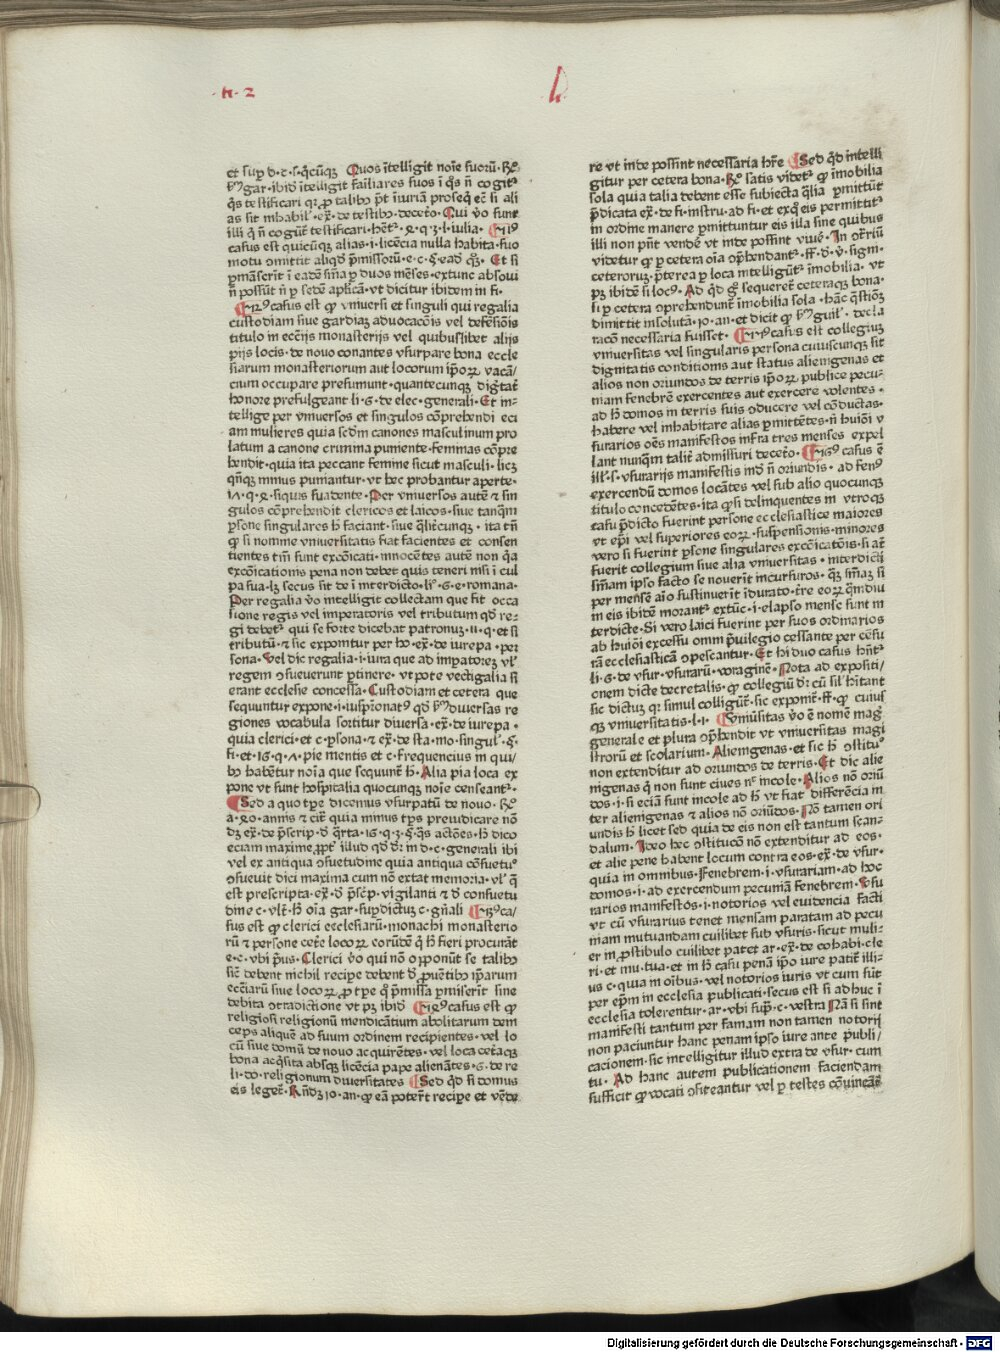 ·n· 2
b
et sup d·c·s·q̄cūq̄ꝫ Quos ītelligit noīe suoꝝ·Rͦ
bꝫ gar·ibid ītelligit familiares suos ī q̄s n̄ cogitꝰ
q̄s testificari qꝛ ꝓ talibꝫ p̄t iniuriā proseq̄ ec̄ si ali
as sit inhabil'·ex̄·de testibꝫ·deceto· Qui v̄o sunt
illi q̄ n̄ cogūt testificari·hēt·4·q·3·l·iulia·
casus est quicūqꝫ alias·i·licēcia nulla habita·suo
motu omittit aliqd p̄missorū·e·c·§·ead qꝫ· Et si
p̄māserit ī eadē sn̄ia p duos mēses·extunc absolui
n̄ possūt n̄ p sedē aplicā·vt dicitur ibidem in fi·
casus est qꝫ vniuersi et singuli qui regalia
custodiam siue gardiaꝫ aduocacōis vel defēsiōis
titulo in ecc̄ijs monasterijs vel quibuslibet alijs
pijs locis·de nouo conantes vsurpare bona eccle
siarum monasteriorum aut locorum ip̄oꝝ vacā/
cium occupare presumunt·quantecunqꝫ diḡtat
honore prefulgeant li·6·de elec·generali· Et in=
tellige per vniuersos et singulos cōprehendi eci
am mulieres quia scd̄m canones masculinum pro
latum a canone crimina puniente·feminas cōpre
hendit·quia ita peccant femine sicut masculi·licꝫ
qn̄qꝫ minus puniantur·vt hec probantur aperte·
17·q·4·siquis suadente· Per vniuersos autē & sin
gulos cōprehendit clericos et laicos·siue tanq̄m
ꝑsone singulares h̄ faciant·siue q̄litcunqꝫ·ita tn̄
qꝫ si nomine vniuersitatis fiat facientes et consen
tientes tm̄ sunt excōicati·innocētes autē non q̄a
excōicationis pena non debet quis teneri nisi ī cul
pa sua·lꝫ secus sit de ī interdicto·li·6·e·romana·
Per regalia v̄o intelligit collectam que fit occa
sione regis vel imperatoris vel tributum qd̄ re=
gi debet· qui se forte dicebat patronuꝫ·11·q·et si
tributū·& sic exponitur per ho·ex̄·de iurepa·per
sona· Vel dic regalia·i·iura que ad impatoreꝫ vl'
regem ꝯsueuerunt ꝑtinere·vt pote vectigalia si
erant ecclesie concessa· Custodiam et cetera que
sequuntur expone·i·iuspr̄onatꝰ qd̄ bꝫ diuersas re
giones vocabula sortitur diuersa·ex̄·de iurepa·
quia clerici·et c·p̄sona·& ex̄·de sta·mo·singul'·§·
fi·et·16·q·7·pie mentis et c·frequencius in qui
bꝫ habētur noīa que sequunt h̄· Alia pia loca ex
pone vt sunt hospitalia quocunqꝫ noīe censeant·
Sed a quo tp̄e dicemus vsurpatū de nouo·Rͦ
a·40·annis & citͣ quia minus tp̄s preiudicare nō
dꝫ ex̄·de p̄scrip·d̄ q̄rta·16·q·3·§·q̄s actōes·h̄ dico
eciam maxime ꝓpt illud qd̄ dr̄ in d·c·generali ibi
vel ex antiqua ꝯsuetudine quia antiqua cōsuetuꝰ
ꝯsueuit dici maxima cum nō extat memoria·vl' q̄
est prescripta·ex̄·d̄ p̄scp·vigilanti & d̄ consuetu
dine c·vlt·h̄ oīa gar·supdictuꝫ c·gn̄ali ca/
sus est qꝫ clerici ecclesiarū·monachi monasterio
rū & persone ceteꝝ locoꝝ eorūdē q̄ h̄ fieri procurāt
e·c·vbi p̄us· Clerici v̄o qui nō opponūt se talibꝫ
sic̄ debent nichil recipe debent d̄ ꝓuētibꝫ ip̄arum
ecc̄iarū siue locoꝝ·ꝓ tp̄e q̄ p̄missa p̄miserīt sine
debita ꝯtradictione vt pꝫ ibid casus est qꝫ
religiosi religionū mendicātium abolitarum dem
ceps aliquē ad suum ordinem recipientes·vel lo
cū siue domū de nouo acquirētes·vel loca cetaqꝫ
bona acq̄sita absqꝫ licēcia pape alienātes·6·de re
li·do·religionum diuersitates Sed qd̄ si domus
eis leget· Rn̄dꝫ jo·an·qꝫ eā potert recipe et vēde
re vt inde possint necessaria hr̄e Sed qd̄ intelli
gitur per cetera bona·Rͦ satis videt qꝫ imobilia
sola quia talia debent esse subiecta q̄lia p̄mittūt
p̄dicata ex̄·de fi·instru·ad fi·et exq̄ eis permittit
in ordine manere p̄mittuntur eis illa sine quibus
illi non pn̄t vendē vt inde possint viuē· In ꝯtriū
videtur qꝫ p cetera oīa ꝯp̄hendant·ff·d̄·v̄·sign·
ceterorum·p̄terea p loca intelligūt īmobilia·vt
pꝫ ibidē si locꝰ· Ad qd̄ gͦ sequeret ceteraqꝫ bona·
si p cetera ꝯprehendunt īmobilia sola·hāc q̄stiōꝫ
dimittit insolutā·jo·an·et dicit qꝫ bꝫ guil'·decla
racō necessaria fuisset· casus est collegiuꝫ
vniuersitas vel singularis persona cuiuscunqꝫ sit
dignitatis conditionis aut status alienigenas et
alios non oriundos de terris ip̄oꝝ publice pecu=
niam fenebrē exercentes aut exercere volentes·
ad h̄ domos in terris suis ꝯducere vel cōductas·
habere vel inhabitare alias p̄mittētes·n̄ huiōi v
surarios oēs manifestos infra tres menses expel
lant nunq̄m talit admissuri deceto· casus ē
ill'·s·vsurarijs manifestis ind n̄ oriundis·ad fenꝰ
exercendū domos locātes vel sub alio quocunqꝫ
titulo concedētes·ita qꝫ si delinquentes in vtroqꝫ
casu p̄dicto fuerint persone ecclesiastice maiores
vt ep̄i vel superiores eoꝝ·suspensionis·minores
vero si fuerint p̄sone singulares excōicatōis·si at
fuerit collegium siue alia vniuersitas·interdicti
sn̄iam ipso facto se nouerit incursuros·qꝫ sn̄iaꝫ si
per mensē aīo sustinuerīt īdurato·t̄re eoꝝ q̄mdiu
in eis ibidē morant extūc·i·elapso mense sunt in
terdicte· Si vero laici fuerint per suos ordinarios
ab huiōi excessu omni p̄uilegio cessante per cēsu
rā ecclesiasticā ꝯpescantur· Et hi duo casus hn̄t
li·6·de vsur·vsurarū·voraginē· Nota ad expositi/
onem dicte decretalis·qꝫ collegiū dr̄ cū sil' hītant
sic dictuꝫ qꝛ simul colligūt·sic exponit·ff·qꝫ cuius
qꝫ vniuersitatis·l·1· Vniūsitas v̄o ē nomē magꝭ
generale et plura ꝯp̄hendit vt vniuersitas magi
strorū et scolarium· Alienigenas·et sic h̄ ꝯstituꝰ
non extenditur ad oriundos de terris· Et dic alie
nigenas q̄ non sunt ciues nͨ incole· Alios nō oriū
dos·i·si eciā sunt incole ad h̄ vt fiat differēcia in
ter alienigenas & alios nō oriūdos· Nō tamen ori
undis h̄ licet sed quia de eis non est tantum scan=
dalum· Ideo hec ꝯstitucō nō extenditur ad eos·
et alie pene habent locum contra eos·ex̄·de vsur·
quia in omnibus· Fenebrem·i·vsurariam·ad hoc
domos·i·ad exercendum pecuniā fenebrem· Vsu
rarios manifestos·i·notorios vel euidencia facti
vt cū vsurarius tenet mensam paratam ad pecu
niam mutuandam cuilibet sub vsuris·sicut muli=
er in ꝓstibulo cuilibet patet ar·ex̄·de cohabi·cle
ri·et mu·tua·et in h̄ casu penā ip̄o iure patit illi=
us c·quia in oībus·vel notorios iuris vt cum sūt
per ep̄m in ecclesia publicati·secus est si adhuc ī
ecclesia tolerentur·ar·vbi supͣ·c·vestra Nā si sint
manifesti tantum per famam non tamen notorij
non paciuntur hanc penam ipso iure ante publi/
cacionem·sic intelligitur illud extra de vsur·cum
tu· Ad hanc autem publicationem faciendam
sufficit qꝫ vocati ꝯfiteantur vel p testes cōuincāt
Digitalisierung gefördert durch die Deutsche Forschungsgemeinschaft - DFG